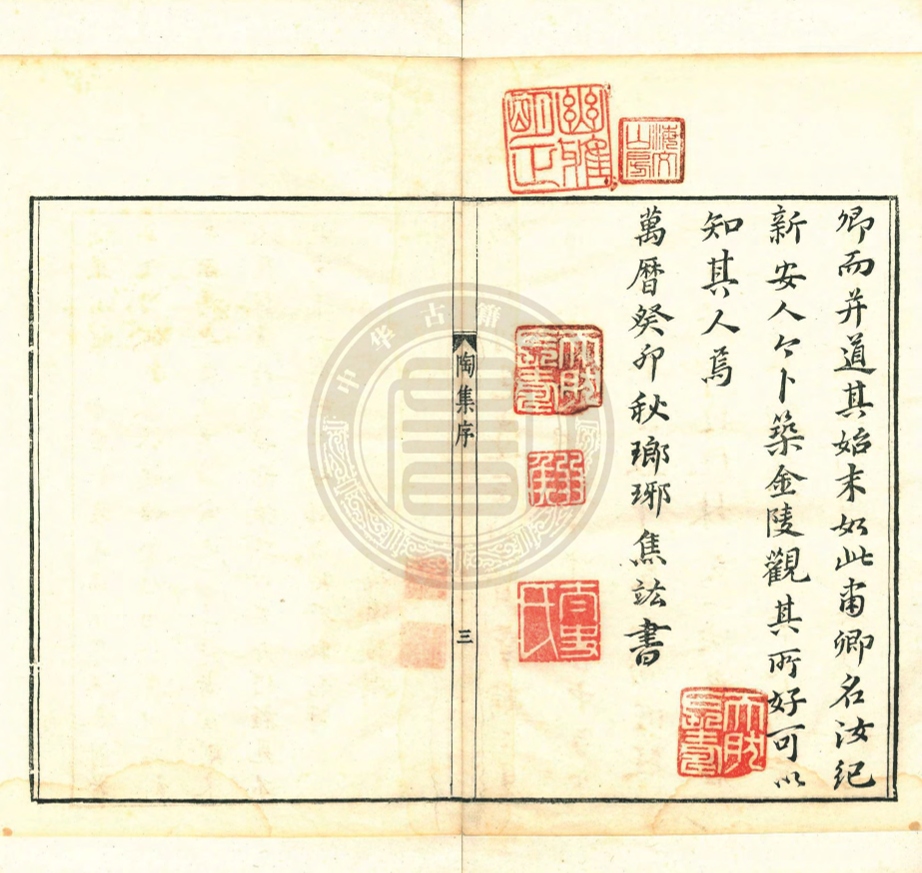 卿而并道其始末如此甫卿名汝紀
新安人今卜築金陵觀其所好可以
知其人焉
萬曆癸卯秋瑯琊焦竑書
太史氏
陶集序
三
中华古籍